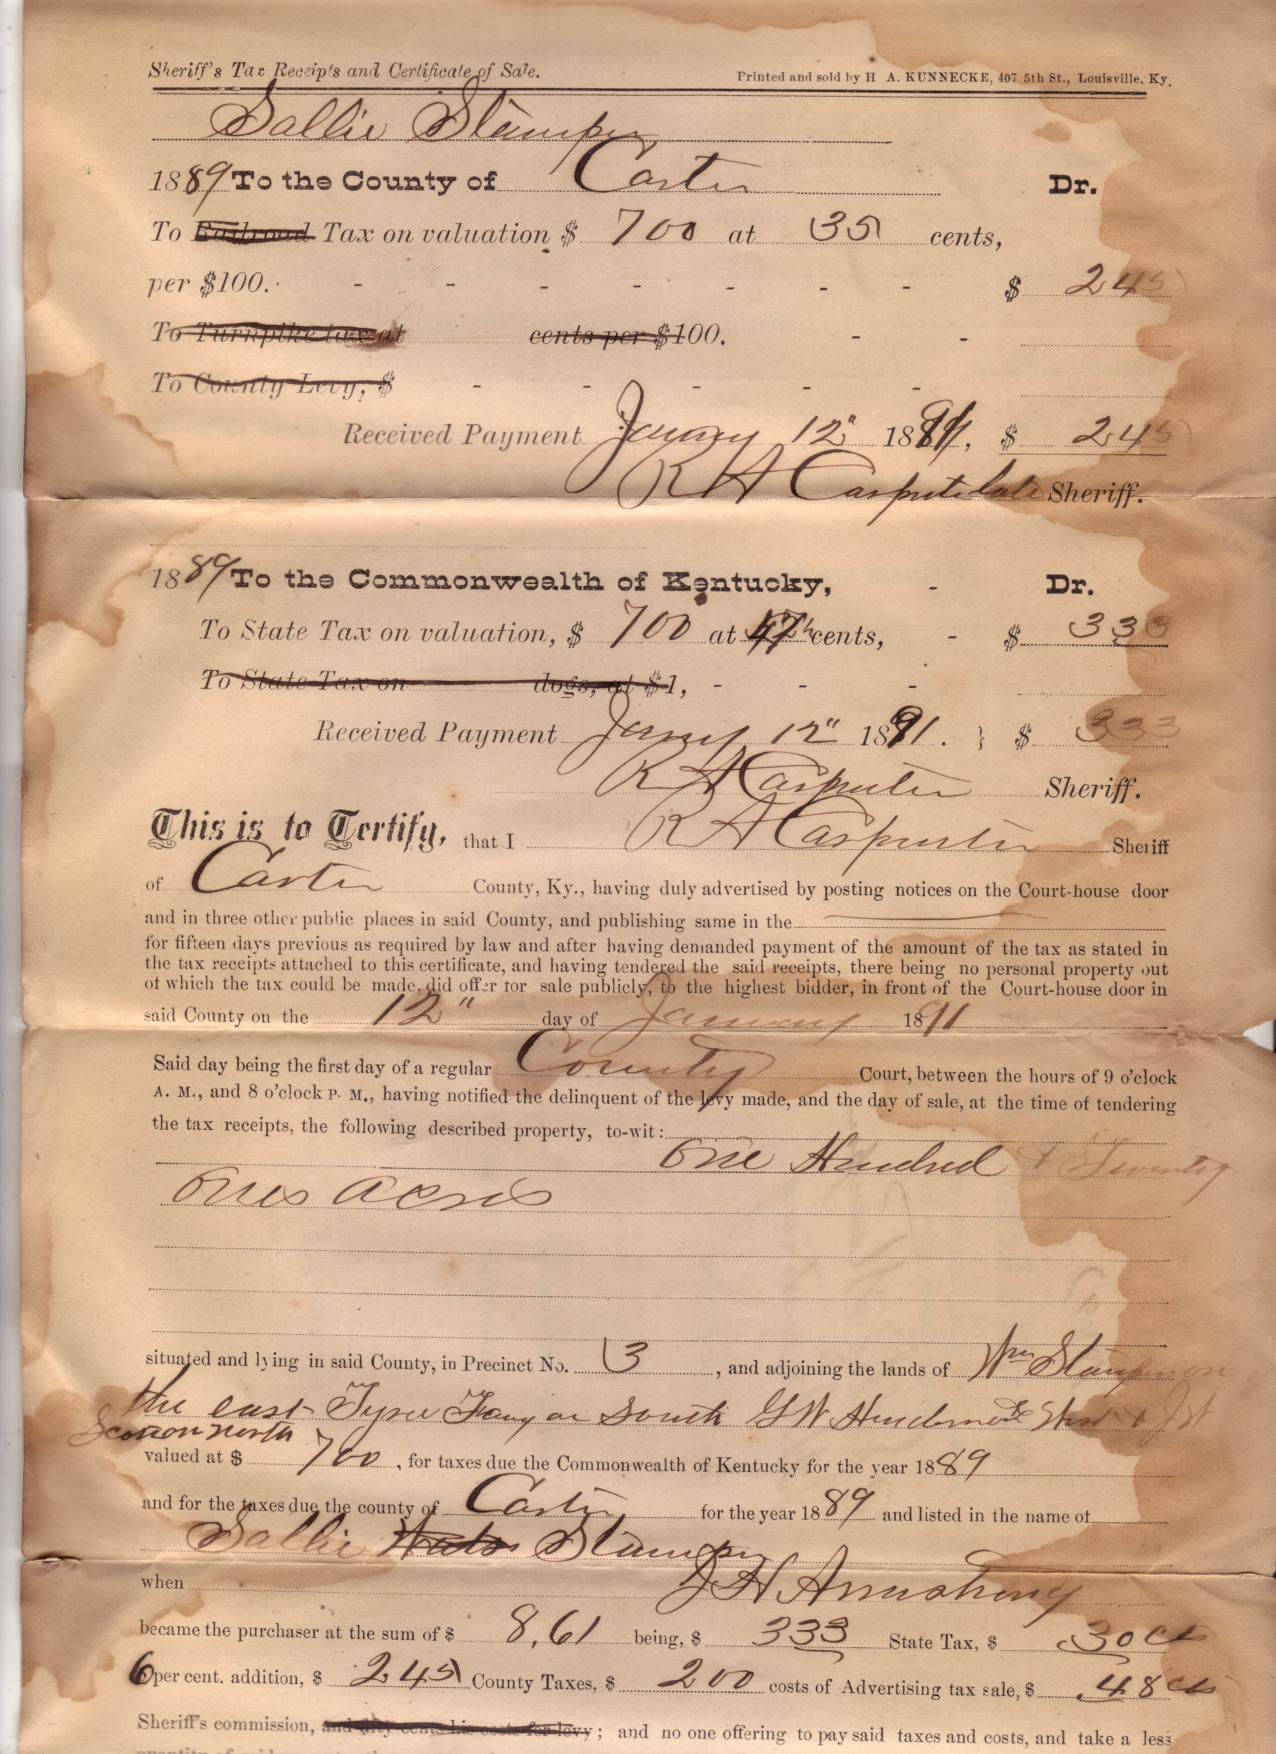 Sheriff's Tax Receipts and Certificate of Sale. Printed and sold by H A. KUNNECKE, 407 5th St., Louisville, Ky.
Sallie Stamper
1889 To the County of Carter Dr.
To Railroad Tax on valuation $ 700 at 35 cents,
per $100. - - - - - - - $ 245
To Turnpike tax at cents per $100. - -
To County Levy, $ - - - - -
Received Payment January 12" 1891, $ 245
R A Carpenter late Sheriff.
1889 To the Commonwealth of Kentucky, - Dr.
To State Tax on valuation, $ 700 at 47½ cents, - $ 333
To State Tax on dogs, at $1, - - -
Received Payment Jany 12" 1891. } $ 333
R A Carpenter Sheriff.
This is to Certify, that I R A Carpenter Sheriff
of Carter County, Ky., having duly advertised by posting notices on the Court-house door
and in three other public places in said County, and publishing same in the
for fifteen days previous as required by law and after having demanded payment of the amount of the tax as stated in
the tax receipts attached to this certificate, and having tendered the said receipts, there being no personal property out
of which the tax could be made, did offer for sale publicly, to the highest bidder, in front of the Court-house door in
said County on the 12" day of January 1891
Said day being the first day of a regular County Court, between the hours of 9 o'clock
A. M., and 8 o'clock P. M., having notified the delinquent of the levy made, and the day of sale, at the time of tendering
the tax receipts, the following described property, to-wit:
One Hundred & Twenty
Ones acres
situated and lying in said County, in Precinct No. 3, and adjoining the lands of Wm Stamper on
the east Tyree on South G W Henderson West & J W
north
valued at $ 700, for taxes due the Commonwealth of Kentucky for the year 1889
and for the taxes due the county of Carter for the year 1889 and listed in the name of
Sallie Stamper
when J H Armstrong
became the purchaser at the sum of $ 8,61 being, $ 333 State Tax, $ .30 cts
6 per cent. addition, $ 245 County Taxes, $ 200 costs of Advertising tax sale, $ .48 cts
Sheriff's commission, and fifty cents his costs for levy; and no one offering to pay said taxes and costs, and take a less